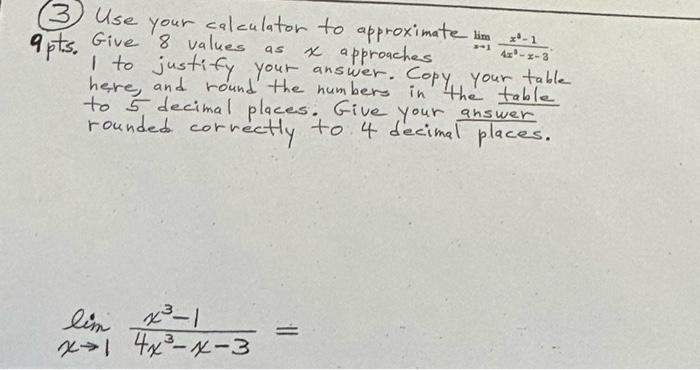 ③ Use your calculator to approximate lim x→1 x³-1 / 4x³-x-3.
9 pts. Give 8 values as x approaches
1 to justify your answer. Copy your table
here, and round the numbers in the table
to 5 decimal places. Give your answer
rounded correctly to 4 decimal places.
lim x→1 x³-1 / 4x³-x-3 =